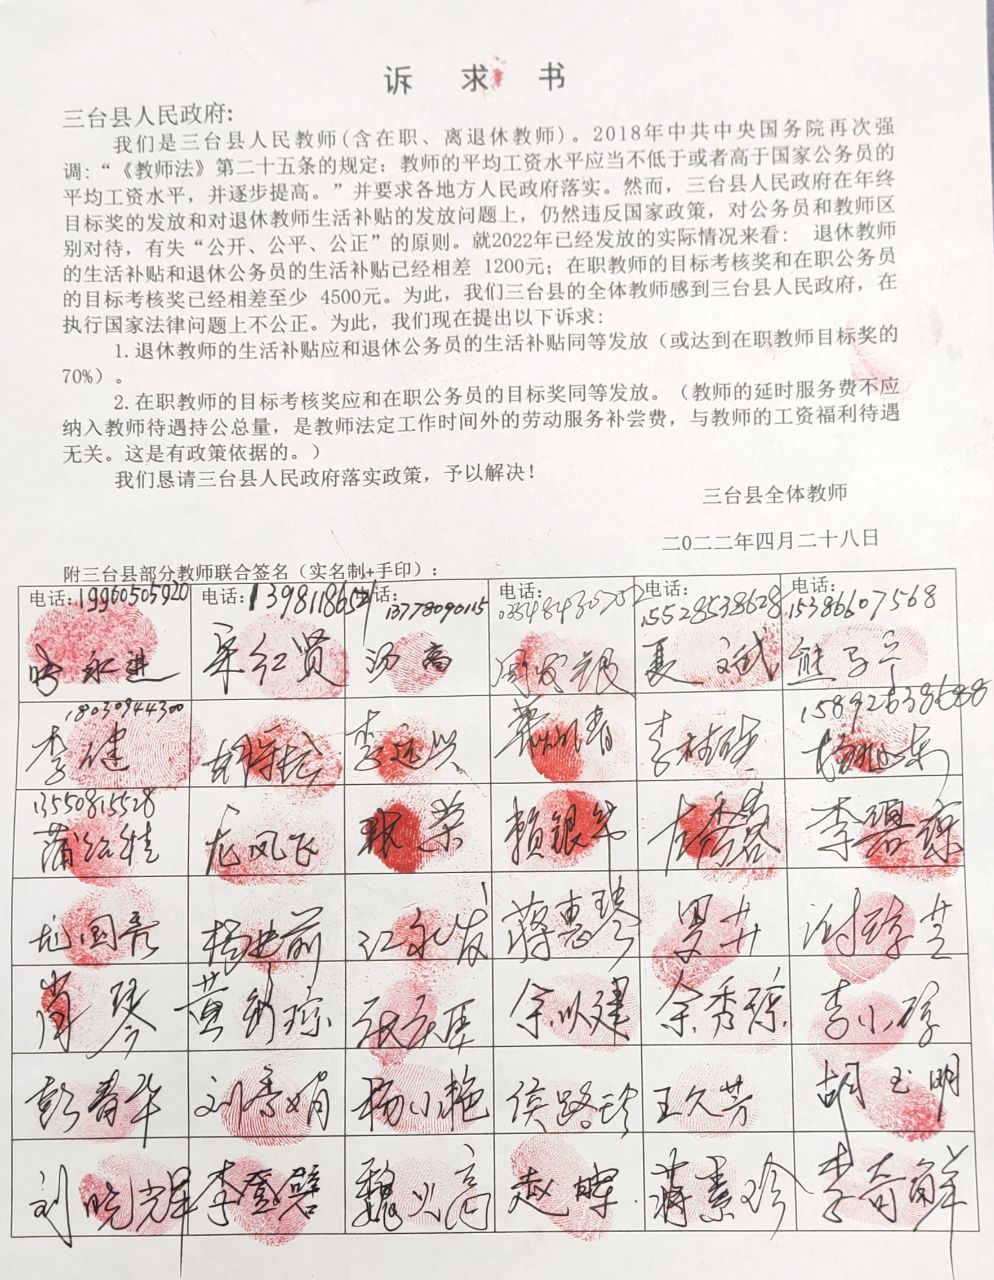 诉 求 书
三台县人民政府:
我们是三台县人民教师(含在职、离退休教师)。2018年中共中央国务院再次强
调:“《教师法》第二十五条的规定:教师的平均工资水平应当不低于或者高于国家公务员的
平均工资水平,并逐步提高。”并要求各地方人民政府落实。然而,三台县人民政府在年终
目标奖的发放和对退休教师生活补贴的发放问题上,仍然违反国家政策,对公务员和教师区
别对待,有失“公开、公平、公正”的原则。就2022年已经发放的实际情况来看: 退休教师
的生活补贴和退休公务员的生活补贴已经相差 1200元;在职教师的目标考核奖和在职公务员
的目标考核奖已经相差至少 4500元。为此,我们三台县的全体教师感到三台县人民政府,在
执行国家法律问题上不公正。为此,我们现在提出以下诉求:
1.退休教师的生活补贴应和退休公务员的生活补贴同等发放(或达到在职教师目标奖的
70%)。
2.在职教师的目标考核奖应和在职公务员的目标奖同等发放。(教师的延时服务费不应
纳入教师待遇持公总量,是教师法定工作时间外的劳动服务补尝费,与教师的工资福利待遇
无关。这是有政策依据的。)
我们恳请三台县人民政府落实政策,予以解决!
三台县全体教师
二〇二二年四月二十八日
附三台县部分教师联合签名(实名制+手印):
电话:19960505920 电话: 电话:13778090115 电话: 电话:15528538628 电话:15386607568
永进 宋红贤 汤高 夏文斌 熊子宁
18030944300 15892638688
李健 李远兴
13550815528
蒲红桂 龙凤飞 张荣 赖银华 李碧琼
龙国亮 杨建前 江永发 蒋惠琴
肖琴 黄 琼 余以建 余秀琼 李小琼
彭春华 刘秀娟 杨小艳 侯路珍 王久芳 胡玉明
刘晓辉 李登碧 魏兴高 赵晖 蒋素珍 李奇鲜